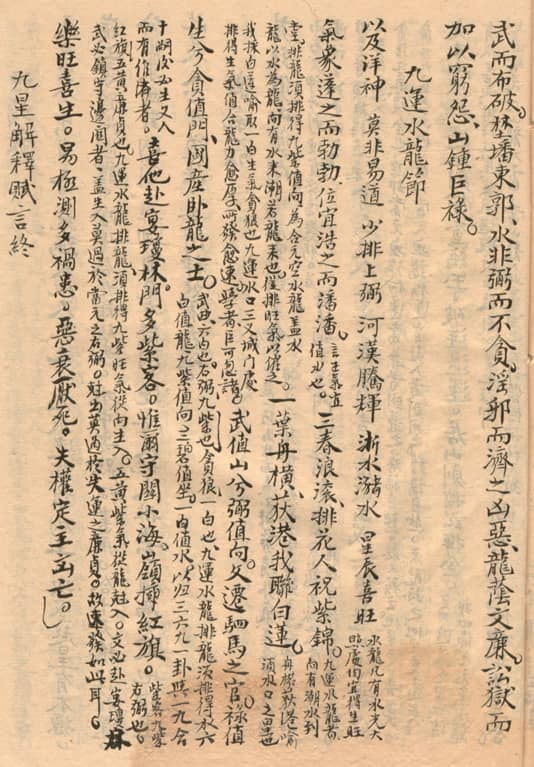 武而布破。埜墦東郭、水非弼而不貪。淫邪而濟之凶惡、龍蔭文廉。訟獄而
加以窮怨、山鍾巨祿。
九運水龍節
以及洋神 莫非易道 少排上弼 河漢騰輝 浙水潴水 星辰喜旺 水龍凡有水光大
照處均宜得生旺
氣象蓬之而勃勃、位宜浩之而潘潘。言王氣宜
值水也。三春浪滾、排花人祝紫錦。九運水龍
向有潮水到
堂、排龍須排得九紫值向、為合元空水龍、蓋水
龍以水為龍、向有水來潮、若龍來也、從排旺氣以催之。一葉舟橫、荻港我聯白蓮。舟橫荻港喻
須水口之
我採白蓮喻取一白生氣貪狼也九運水口三叉城門處
排得生氣值合龍力愈厚、所發愈速、學者巨可忽諸。武值山兮弼值向。文遷駟馬之官、祿值
生兮貪值門、國産卧龍之士。武曲六白也、右弼九紫也、貪狼一白也、九運水龍排龍決排得六
白值龍、九紫值向、三碧值坐、一白值水、以歸三六九一卦與一九合
十、嗣後必生文人
而有作爲者。喜他赴宴瓊林。門多紫客。惟爾守關小海。嶺揷紅旗。紫客九紫
右弼也。
紅旗五黃廉貞也、九運水龍排龍、須排得九紫旺氣從向主入。五黃紫氣從龍尅入。文必赴宴瓊林
武必鎮守邊圉者、蓋生入莫過於當元之右弼。尅出莫過於失運之廉貞。故速發如此耳。
樂旺喜生。易極測多禍患。惡衰厭死。失權定主立亡。
九星解釋賦言終